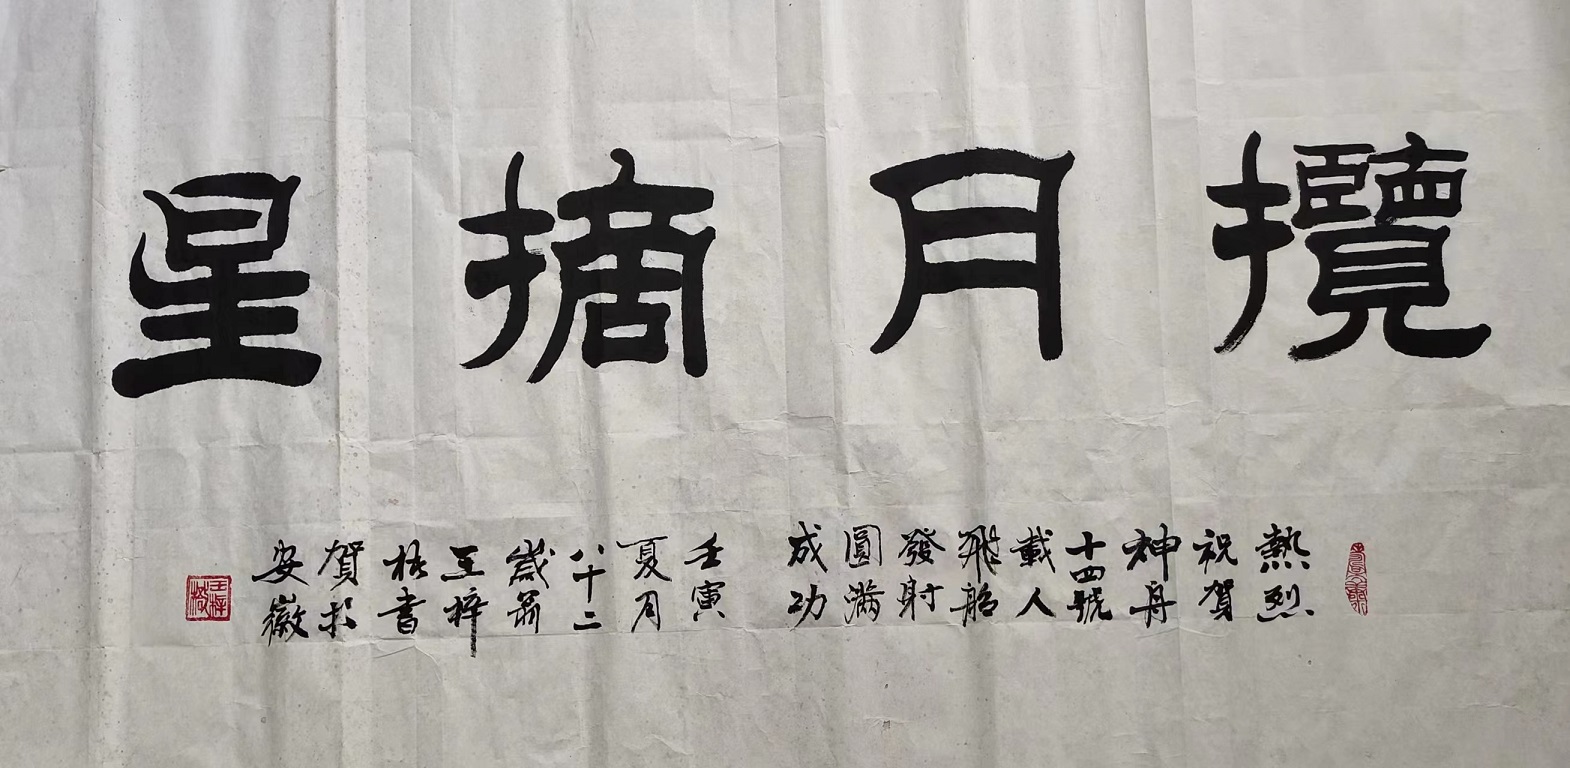 攬月摘星
熱烈
祝賀
神舟
十四號
載人
飛船
發射
圓滿
成功
壬寅
夏月
八十二
歲翁
王梓
書
賀於
安徽